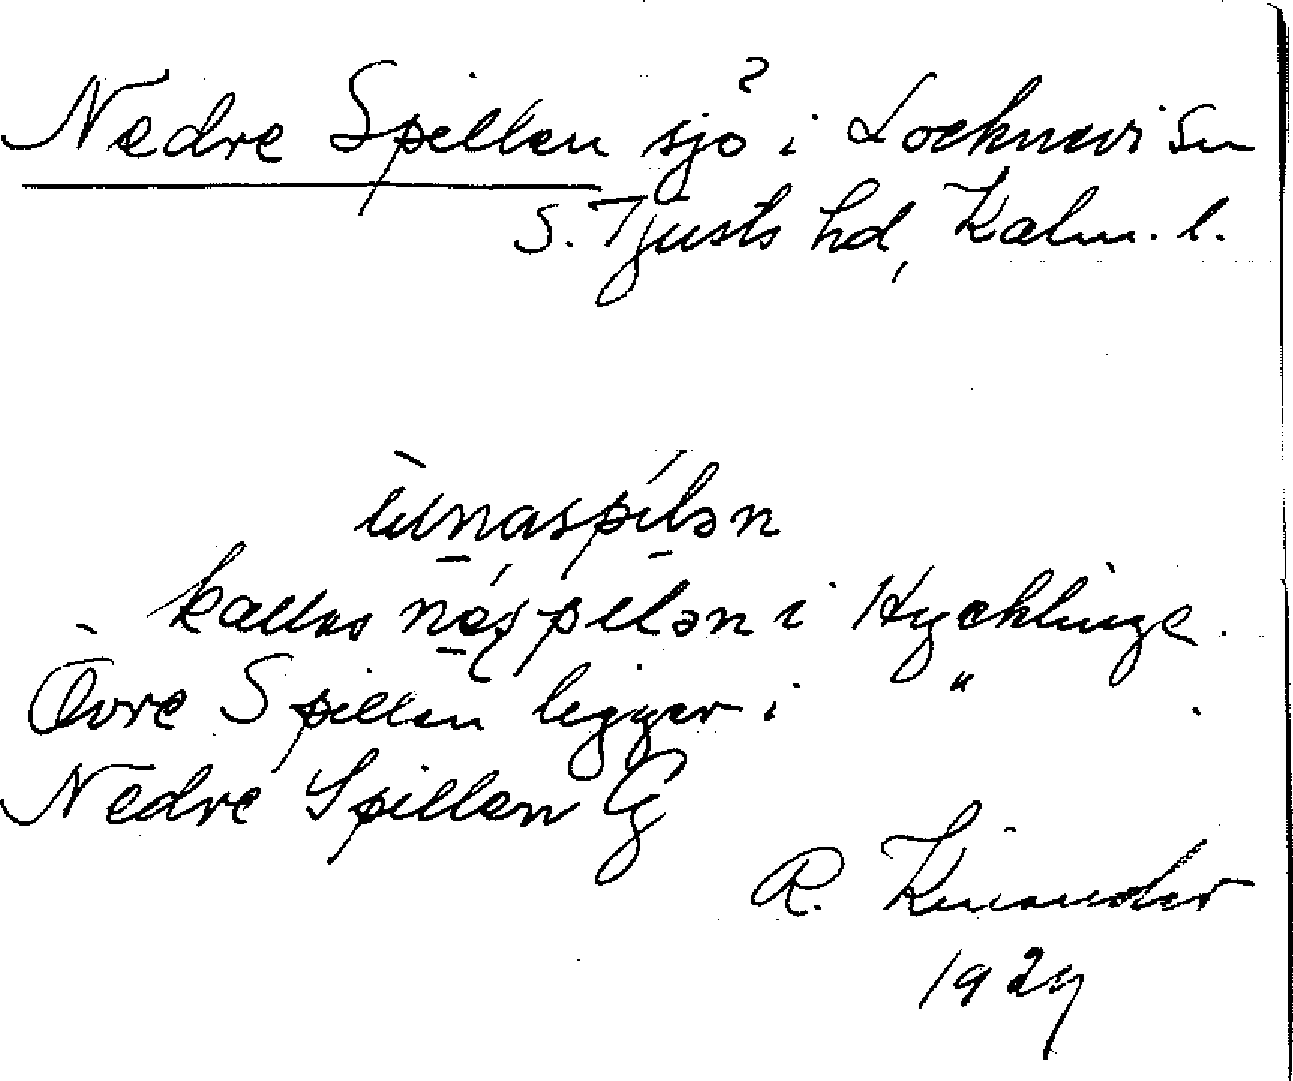 Nedre Spillen sjö i Locknevi Sn
S. Tjusts hd, Kalm. l.
kallas i Hycklinge.
Övre Spillen ligger i "
Nedre Spillen G
R. Kinander
1927